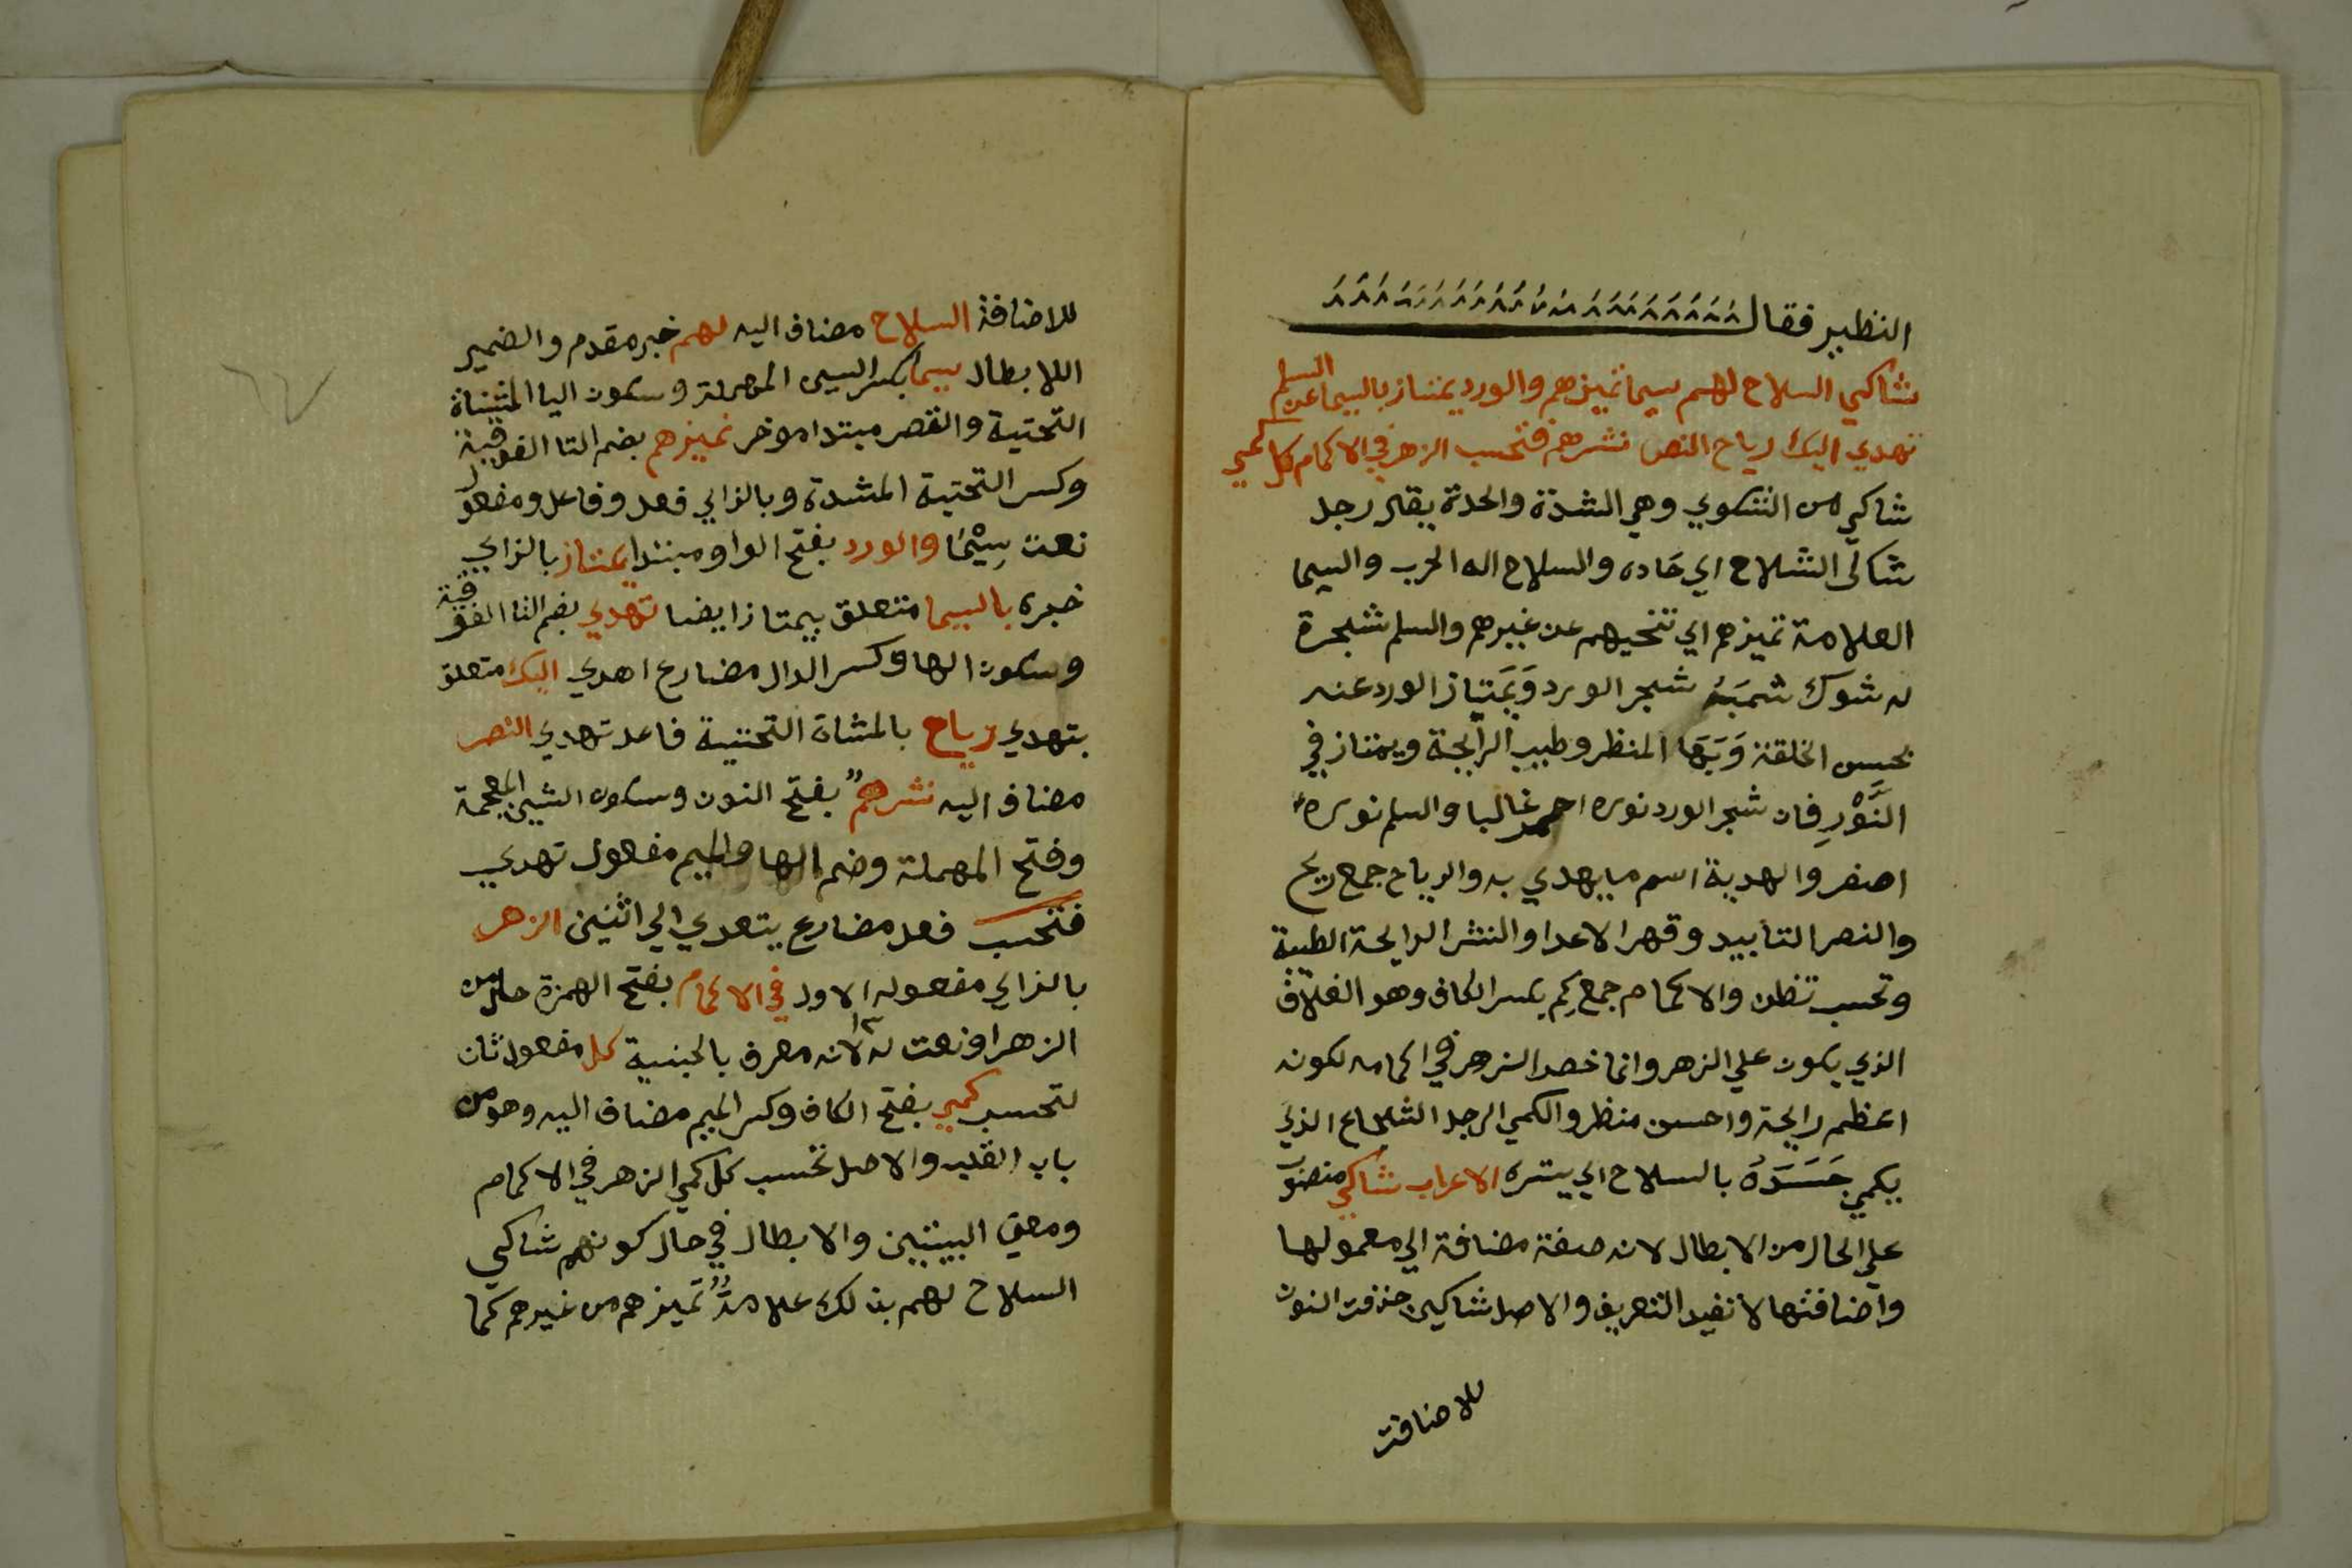 النظير فقال
شاكي السلاح لهم سيما تميزهم والورد يمتاز بالسيما عن السلم
تهدي اليك رياح النصر نشرهم فتحسب الزهر في الاكمام كل كمي
شاكي من الشكوي وهي الشدة والحدة يقال رجل
شاكي السلاح اي حاده والسلاح اله الحرب والسيما
العلامة تميزهم اي تنحيهم عن غيرهم والسلم شجرة
له شوك شبَهُ شجر الورد وَيَمتاز الورد عنه
بحسن الخلقة وَبَهَا المنظر وطيب الرايحة ويمتاز في
النَّوْرِ فان شجر الورد نوره احمر غالبا والسلم نوره
اصفر والهدية اسم ما يهدي به والرياح جمع ريح
والنصر التأييد وقهر الاعدا والنشر الرايحة الطيبة
وتحسب تظن والاكمام جمع كِم بكسر الكاف وهو الغلاف
الذي يكون علي الزهر وانما خص الزهر في اكمامه لكونه
اعظم رايحة واحسن منظر والكمي الرجل الشجاع الذي
يكمي جَسَدَهُ بالسلاح اي يستره الاعراب شاكي منصوب
علي الحال من الابطال لانه صفة مضافة الي معمولها
واضافتها لا تفيد التعريف والاصل شاكين حذفت النون
للاضافة
للاضافة السلاح مضاف اليه لهم خبر مقدم والضمير
اللابطال سيما بكسر السين المهملة وسكون اليا المثناة
التحتية والقصر مبتدا موخر تميزهم بضم التا الفوقية
وكسر التحتية المشدة وبالزاي فعل وفاعل ومفعول
نعت سِيْمَا والورد بفتح الواو مبتدا يمتاز بالزاي
خبره بالسيما متعلق بيمتاز ايضا تهدي بضم التا الفوقية
وسكون الها وكسر الدال مضارع اهدي اليك متعلق
بتهدي رياح بالمثناة التحتية فاعل تهدي النصر
مضاف اليه نشرهم بفتح النون وسكون الشين المعجمة
وفتح المهملة وضم الها والميم مفعول تهدي
فتحسب فعل مضارع يتعدي الي اثنين الزهر
بالزاي مفعوله الاول في الاكمام بفتح الهمزة حال من
الزهر او نعت له لانه معرف بالجنسية كل مفعول ثان
لتحسب كمي بفتح الكاف وكسر الميم مضاف اليه وهو من
باب القلب والاصل تحسب كل كمي الزهر في الاكمام
ومعني البيتين والابطال في حال كونهم شاكي
السلاح لهم بذلك علامةٌ تميزهم من غيرهم كما